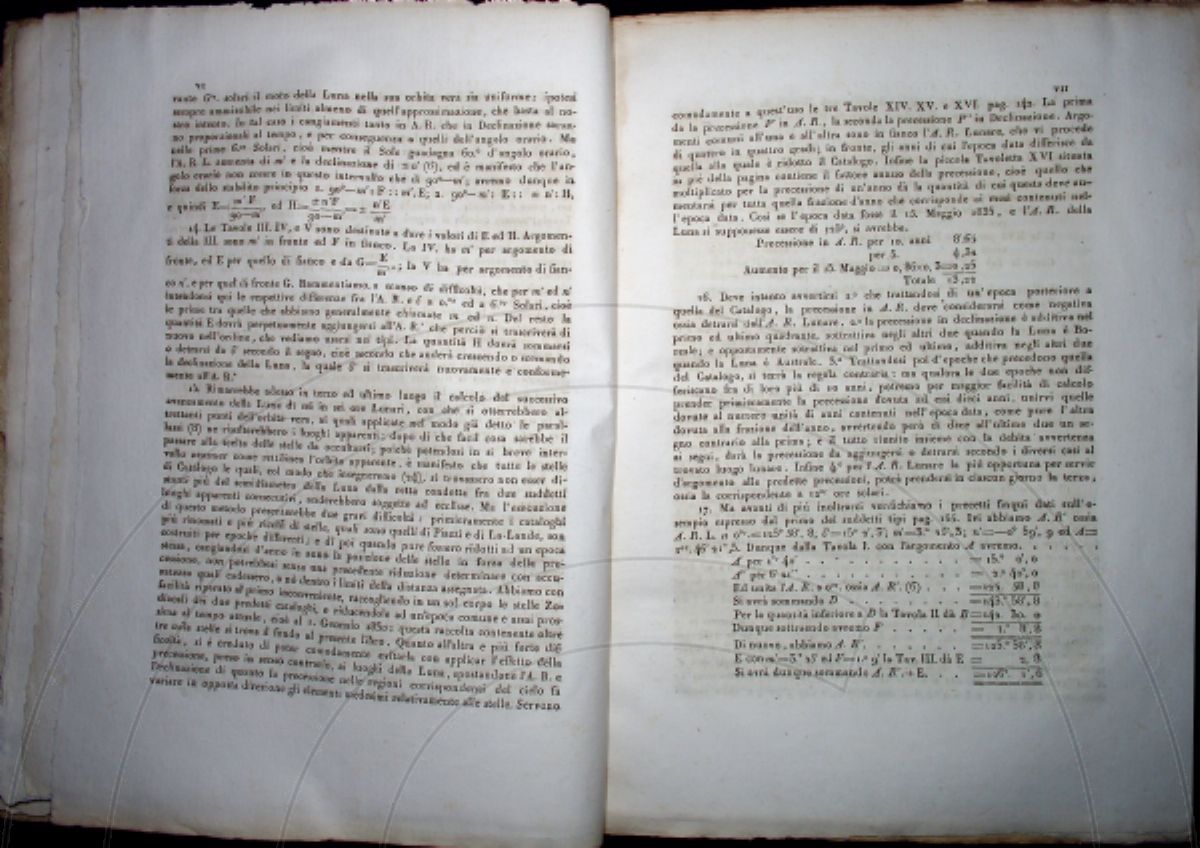 VI
rante 6.ore solari il moto della Luna nella sua orbita vera sia uniforme: ipotesi
sempre ammissibile nei limiti almeno di quell'approssimazione, che basta al no-
stro intento. In tal caso i cangiamenti tanto in A. R. che in Declinazione saran-
no proporzionali al tempo, e per conseguenza a quelli dell'angolo orario. Ma
nelle prime 6.ore Solari, cioè mentre il Sole guadagna 60.° d'angolo orario,
l'A. R. L. aumenta di m' e la declinazione di ± n' (6), ed è manifesto che l'an-
golo orario non cresce in questo intervallo che di 90°—m'; avremo dunque in
forza dello stabilito principio 1. 90°—m': F :: m', E; 2. 90°—m': E :: ± n': H,
e quindi E= m' F / 90—m' ed H= ± n' F / 90—m' = ± n' E / m'
14. Le Tavole III. IV. e V sono destinate a dare i valori di E ed H. Argomen-
ti della III. sono m' in fronte ed F in fianco. La IV. ha m' per argomento di
fronte, ed E per quello di fianco e da G= E / m' ; la V ha per argomento di fian-
co n', e per quel di fronte G.
intendonsi qui le respettive differenze fra l'A. R. e δ a 0.ore ed a 6.ore Solari, cioè
le prime tra quelle che abbiamo generalmente chiamate m ed n. Del resto la
quantità E dovrà perpetuamente aggiungersi all'A. R.' che perciò si trascriverà di
nuovo nell'ordine, che vediamo
o detrarsi da δ' secondo il segno, cioè secondo che anderà crescendo o scemando
la declinazione della Luna, la quale δ' si trascriverà nuovamente e conforme-
mente all'A. R.'
15. Rimarrebbe adesso in terzo ed ultimo luogo il calcolo del successivo
avanzamento della Luna di ore Lunari, con che si otterrebbero al-
trettanti punti dell'orbita vera, ai quali applicate nel modo già detto le paral-
lassi (8) ne risulterebbero i luoghi apparenti; dopo di che facil cosa sarebbe il
passare alla scelta delle stelle da occultarsi; poichè potendosi in sì breve inter-
vallo assumer come rettilinea l'orbita apparente, è manifesto che tutte le stelle
di Catalogo le quali, col modo che insegneremo si trovassero non esser di-
stanti più del semidiametro della Luna dalla retta condotta fra due suddetti
luoghi apparenti consecutivi, anderebbero soggette ad ecclisse. Ma l'esecuzione
di questo metodo presenterebbe due gravi difficoltà: primieramente i cataloghi
più rinomati e più ricchi di stelle, quali sono quelli di Piazzi e di La-Lande, son
costruiti per epoche differenti; e di poi quando pure fossero ridotti ad un epoca
stessa, cangiandosi d'anno in anno la posizione delle stelle in forza della pre-
cessione, non potrebbesi senza una precedente riduzione determinare con accu-
ratezza quali cadessero, o nò dentro i limiti della distanza assegnata. Abbiamo con
facilità riparato al primo inconveniente, raccogliendo in un sol corpo le stelle Zo-
diacali dei due predetti cataloghi, e riducendole ad un'epoca comune e assai pros-
sima al tempo attuale, cioè al 1. Gennaio 1830: questa raccolta contenente oltre
tre mila stelle si trova in fondo al presente libro. Quanto all'altra e più forte dif-
ficoltà, si è creduto di poter comodamente evitarla con applicar l'effetto della
precessione, preso in senso contrario, ai luoghi della Luna, spostandone l'A. R. e
Declinazione di quanto la precessione nelle regioni corrispondenti del cielo fa
variare in opposta direzione gli elementi medesimi relativamente alle stelle. Servono
VII
comodamente a quest'uso le tre Tavole XIV. XV. e XVI. pag. 142. La prima
da la precessione P in A. R., la seconda la precessione P' in Declinazione. Argo-
menti comuni all'una e all'altra sono in fianco l'A. R. Lunare, che vi procede
di quattro in quattro gradi; in fronte, gli anni di cui l'epoca data differisce da
quella alla quale è ridotto il Catalogo. Infine la piccola Tavoletta XVI situata
a piè della pagina contiene il fattore annuo della precessione, cioè quello che
moltiplicato per la precessione di un'anno dà la quantità di cui questa deve au-
mentarsi per tutta quella frazione d'anno che corrisponde ai mesi contenuti nel-
l'epoca data. Così se l'epoca data fosse il 15. Maggio 1825, e l'A. R. della
Luna si supponesse essere di 128°, si avrebbe.
Precessione in A. R. per 10. anni 8'.63
per 5. 4,32
Aumento per il 15. Maggio
Totale 13,26
16. Deve intanto avvertirsi 1.° che trattandosi di un'epoca posteriore a
quella del Catalogo, la precessione in A. R. deve considerarsi come negativa
ossia detrarsi dall'A. R. Lunare. 2.° la precessione in declinazione è additiva nel
primo ed ultimo quadrante, sottrattiva negli altri due quando la Luna è Bo-
reale; e oppostamente sottrattiva nel primo ed ultimo, additiva negli altri due
quando la Luna è Australe. 3.° Trattandosi poi d'epoche che precedono quella
del Catalogo, si terrà la regola contraria: ma qualora le due epoche non dif-
feriscano fra di loro più di 10 anni, potremo per maggior facilità di calcolo
prender primieramente la precessione dovuta ad essi dieci anni, unirvi quelle
dovute al numero unità di anni contenuti nell'epoca data, come pure l'altra
dovuta alla frazione dell'anno, avvertendo però di dare all'ultime due un se-
gno contrario alla prima; e il tutto riunito insieme con la debita avvertenza
ai segni, darà la precessione da aggiungersi o detrarsi secondo i diversi casi al
trovato luogo lunare. Infine 4.° per l'A. R. Lunare la più opportuna per servir
d'argomento alle predette precessioni, potrà prendersi in ciascun giorno la terza,
ossia la corrispondente a 12.ore ore solari.
17. Ma avanti di più inoltrarci verifichiamo i precetti finqui dati sull'e-
sempio espresso dal primo dei suddetti tipi pag. 144. Ivi abbiamo A. R' ossia
A. R. L. a 0.ore=125° 58'. 8, δ'=15° 2'. 3; m'=3.° 25',3; n'=—0° 59'. 9 ed A=
Dunque dalla Tavola I. con l'argomento A avremo. . . . . .
A per . . . . . . . . . . = 15.° 0', 0
A' per . . . . . . . . . . = 2.° 40', 0
Ed unita l'A. R. a 0.ore, ossia A. R'. (6) . . . =125. 58, 8
Si avrà sommando D . . . . . . =143.° 38', 8
Per la quantità inferiore a D la Tavola II. dà B=142. 30. 0
Dunque sottraendo avremo F . . . . . = 1.° 8, 8
Di nuovo, abbiamo A. R'. . . . . . =125.° 58', 8
E con m'=3.° 25' ed F=1.° 9' la Tav. III. dà E = 2. 8
Si avrà dunque sommando A. R'. + E. . . . =126.° 1', 6